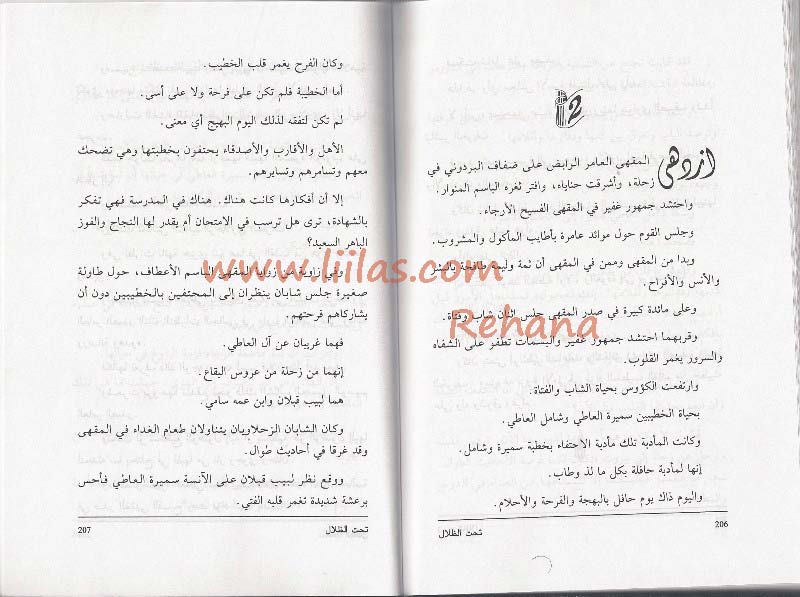 12
ازدهى المقهى العامر الرابض على ضفاف البردوني في
زحلة، وأشرقت حناياه، وافتر ثغره الباسم المنوار.
واحتشد جمهور غفير في المقهى الفسيح الأرجاء.
وجلس القوم حول موائد عامرة بأطايب المأكول والمشروب.
وبدا من المقهى وممن في المقهى أن ثمة وليمة طافحة بالبشر
والأنس والأفراح.
وعلى مائدة كبيرة في صدر المقهى جلس اثنان شاب وفتاة.
وقربهما احتشد جمهور غفير والبسمات تطفو على الشفاه
والسرور يغمر القلوب.
وارتفعت الكؤوس بحياة الشاب والفتاة.
بحياة الخطيبين سميرة العاطي وشامل العاطي.
وكانت المأدبة تلك مأدبة الاحتفاء بخطبة سميرة وشامل.
إنها لمأدبة حافلة بكل ما لذ وطاب.
واليوم ذاك يوم حافل بالبهجة والفرحة والأحلام.
206
تحت الظلال
وكان الفرح يغمر قلب الخطيب.
أما الخطيبة فلم تكن على فرحة ولا على أسى.
لم تكن لتفقه لذلك اليوم البهيج أي معنى.
الأهل والأقارب والأصدقاء يحتفون بخطبتها وهي تضحك
معهم وتسامرهم وتسايرهم.
إلا أن أفكارها كانت هناك. هناك في المدرسة فهي تفكر
بالشهادة، ترى هل ترسب في الامتحان أم يقدر لها النجاح والفوز
الباهر السعيد؟
وفي زاوية من زوايا المقهى الباسم الأعطاف، حول طاولة
صغيرة جلس شابان ينظران إلى المحتفين بالخطيبين دون أن
يشاركاهم فرحتهم.
فهما غريبان عن آل العاطي.
إنهما من زحلة من عروس البقاع.
هما لبيب قبلان وابن عمه سامي.
وكان الشابان الزحلاويان يتناولان طعام الغداء في المقهى
وقد غرقا في أحاديث طوال.
ووقع نظر لبيب قبلان على الآنسة سميرة العاطي فأحس
برعشة شديدة تغمر قلبه الفتي.
207
تحت الظلال
www.liilas.com
Rehana